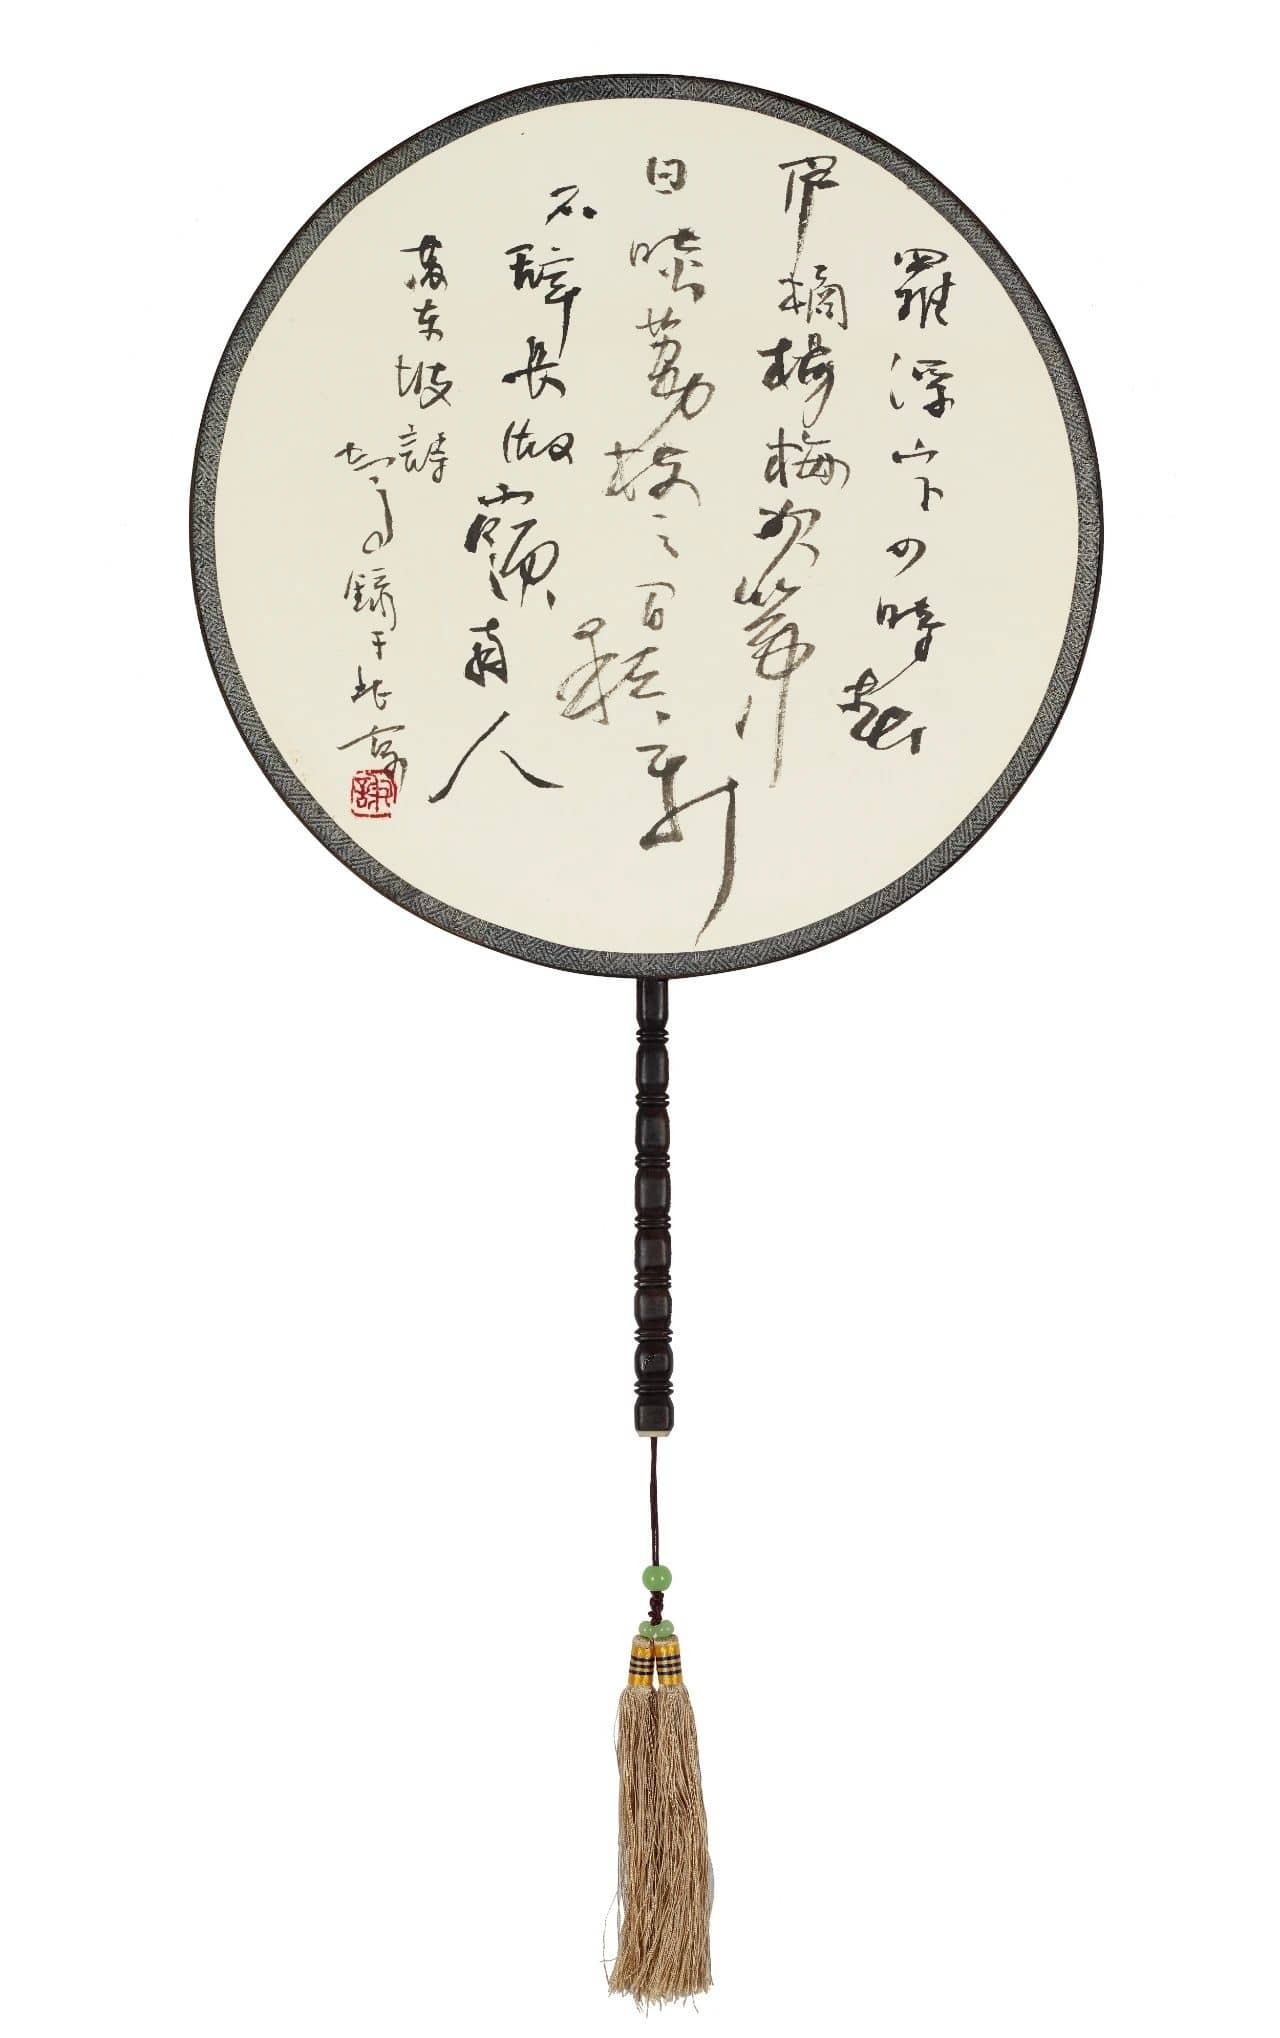 羅浮山下四時春
盧橘楊梅次第新
日啖荔枝三百顆
不辭長做嶺南人
蘇東坡詩
于北京